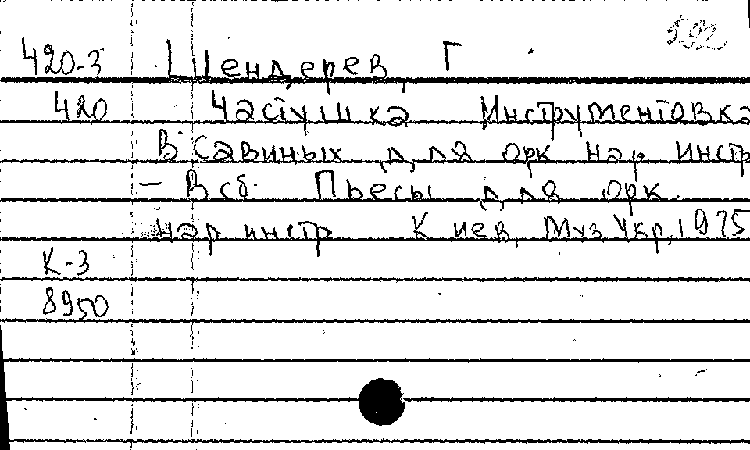 592
420-3 Шендерев Г
420 Частушка Инструментовка
В Савиных для орк нар инстр
— В сб. Пьесы для орк.
нар инстр Киев, Муз Укр, 1975
К-3
8950